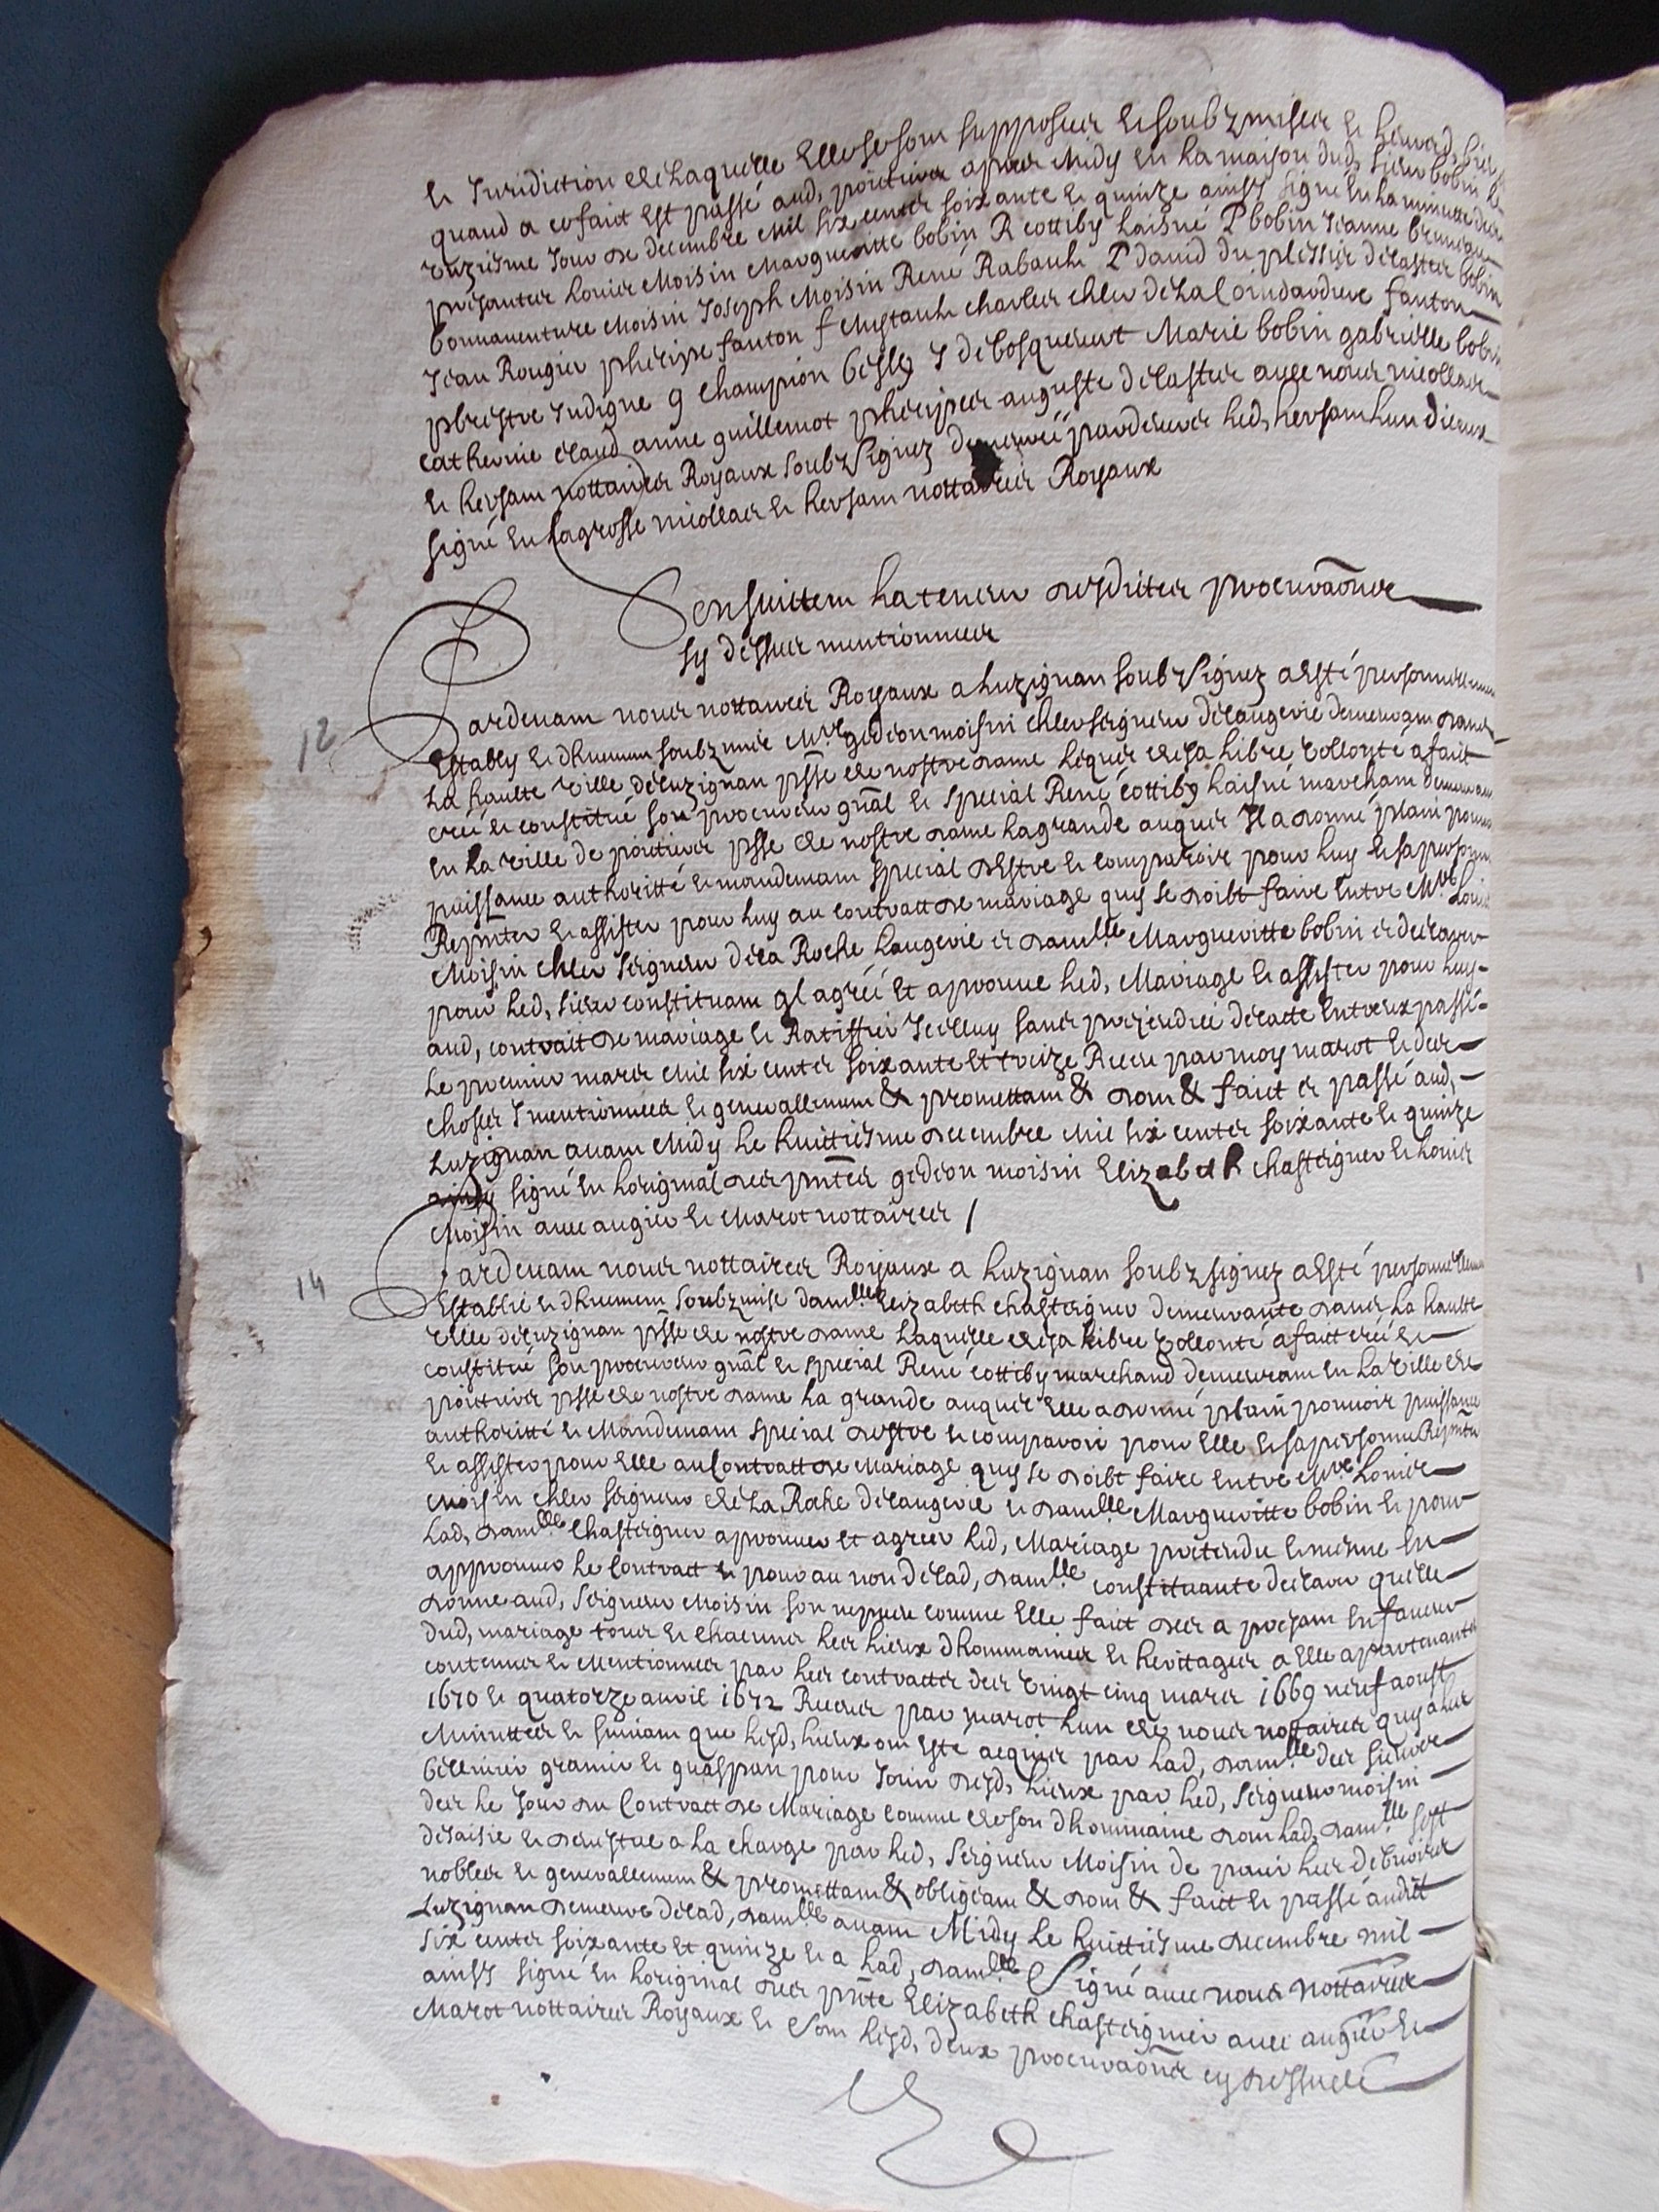 et Juridiction de laquelle Elles se sont supposées et soubzmises et
quand a ce faict Est passé aud, poictiers apres Midy en la maison dud, sieur bobin le
unziesme Jour de decembre mil six cents soixante et quinze ainsy signé en la minutte des
presantes Louis Moisin Marguerite bobin R cottiby laisné P bobin Jeanne
bonnaventure Moisin Joseph Moisin René Rabault P david du plessis bobin
Jean Rougier phelippe fanton f charles chler fanton
pbrestre Indigne g champion besly J de bosquevert Marie bobin gabrielle bobin
catherine anne guillemot phelippes auguste avec nous nicollas
et hersant nottaires Royaux soubzsignez demeuré pardevers led, hersant lun diceux
signé en la grosse nicollas et hersant nottaires Royaux
Sensuittent la teneur desdites procuraõns
sy dessus mentionnees
12
Pardevant nous nottaires Royaux a Luzignan soubzsignez a Esté personnellement
Estably et dhuement soubzmis Mre gedeon moisin chler seigneur de laugerie demeurant dans
la haulte ville de Luzignan psse de nostre dame lequel de sa libre vollonté a faict
creé et constitué son procureur gñal et special René cottiby laisné marchant demeurant
en la ville de poictiers psse de nostre dame la grande auquel Il a donné plain pouvoir
puissance authoritté et mandemant special dEstre et comparoir pour luy et sa personne
Repnter et assister pour luy au contratt de mariage quy se doibt faire Entre Mre Louis
Moisin chler seigneur de la Roche laugerie et damlle Marguerite bobin et declarer
pour led, sieur constituant qI agreé Et aprouve led, Mariage et assister pour luy
aud, contratt de mariage et Rattiffier Icelluy sans prejeudice de lacte Entreux passé
le premier mars mil six cents soixante Et treize Receu par moy marot et des
choses y mentionnees et generallement & promettant & dont & faict et passé aud,
Luzignan avant Midy le huittiesme decembre mil six cents soixante et quinze
ainsy signé en loriginal des pntes gedeon moisin Elizabeth chasteigner et Louis
Moisin avec augier et Marot nottaires /
14
Pardevant nous nottaires Royaux a Luzignan soubzsignez a Esté personnellement
Establie et dhuement soubzmise damlle Elizabeth chasteigner demeurante dans la haulte
ville de Luzignan psse de nostre dame laquelle de sa libre vollonté a faict creé et
constitué son procureur gñal et special René cottiby marchand demeurant en la ville de
poictiers psse de nostre dame la grande auquel Elle a donné plain pouvoir puissance
authoritté et Mandemant special dEstre et comparoir pour Elle et sa personne Repnter
et assister pour Elle au Contratt de Mariage quy se doibt faire Entre Mre Louis
Moisin chler seigneur de La Roche de laugerie et damlle Marguerite bobin et pour
lad, damlle chasteigner aprouver et agreer led, Mariage pretendu et mesme en
approuver le Contratt et pour au non de lad, damlle constituante declarer quelle
donne aud, seigneur Moisin son nepveu comme Elle faict des a presant en faveur
dud, mariage tous et chacuns les lieux dhommaines et herittages a Elle apartenants
contenus et Mentionnes par les contratts des vingt cinq mars 1669 neuf aoust
1670 et quatorze avril 1672 Receus par marot lun de nous nottaires quy a les
Minuttes et suivant que lesd, lieux ont Esté acquis par lad, damlle des sieurs
granier et pour Jouir desd, lieux par led, seigneur moisin
des le Jour du Contratt de Mariage comme de son dhommaine dont lad, damlle sest
desaisie et devestue a la charge par led, seigneur Moisin de paier les debvoirs
nobles et generallement & promettant & obligeant & dont & faict et passé audit
Luzignan demeure de lad, damlle avant Midy le huittiesme decembre mil
six cents soixante Et quinze et a lad, damlle Signé avec nous nottaires
ainsy signé en loriginal des pnte Elizabeth chasteigner avec augier et
Marot nottaires Royaux et Sont lesd, deux procuraõns cy dessus de